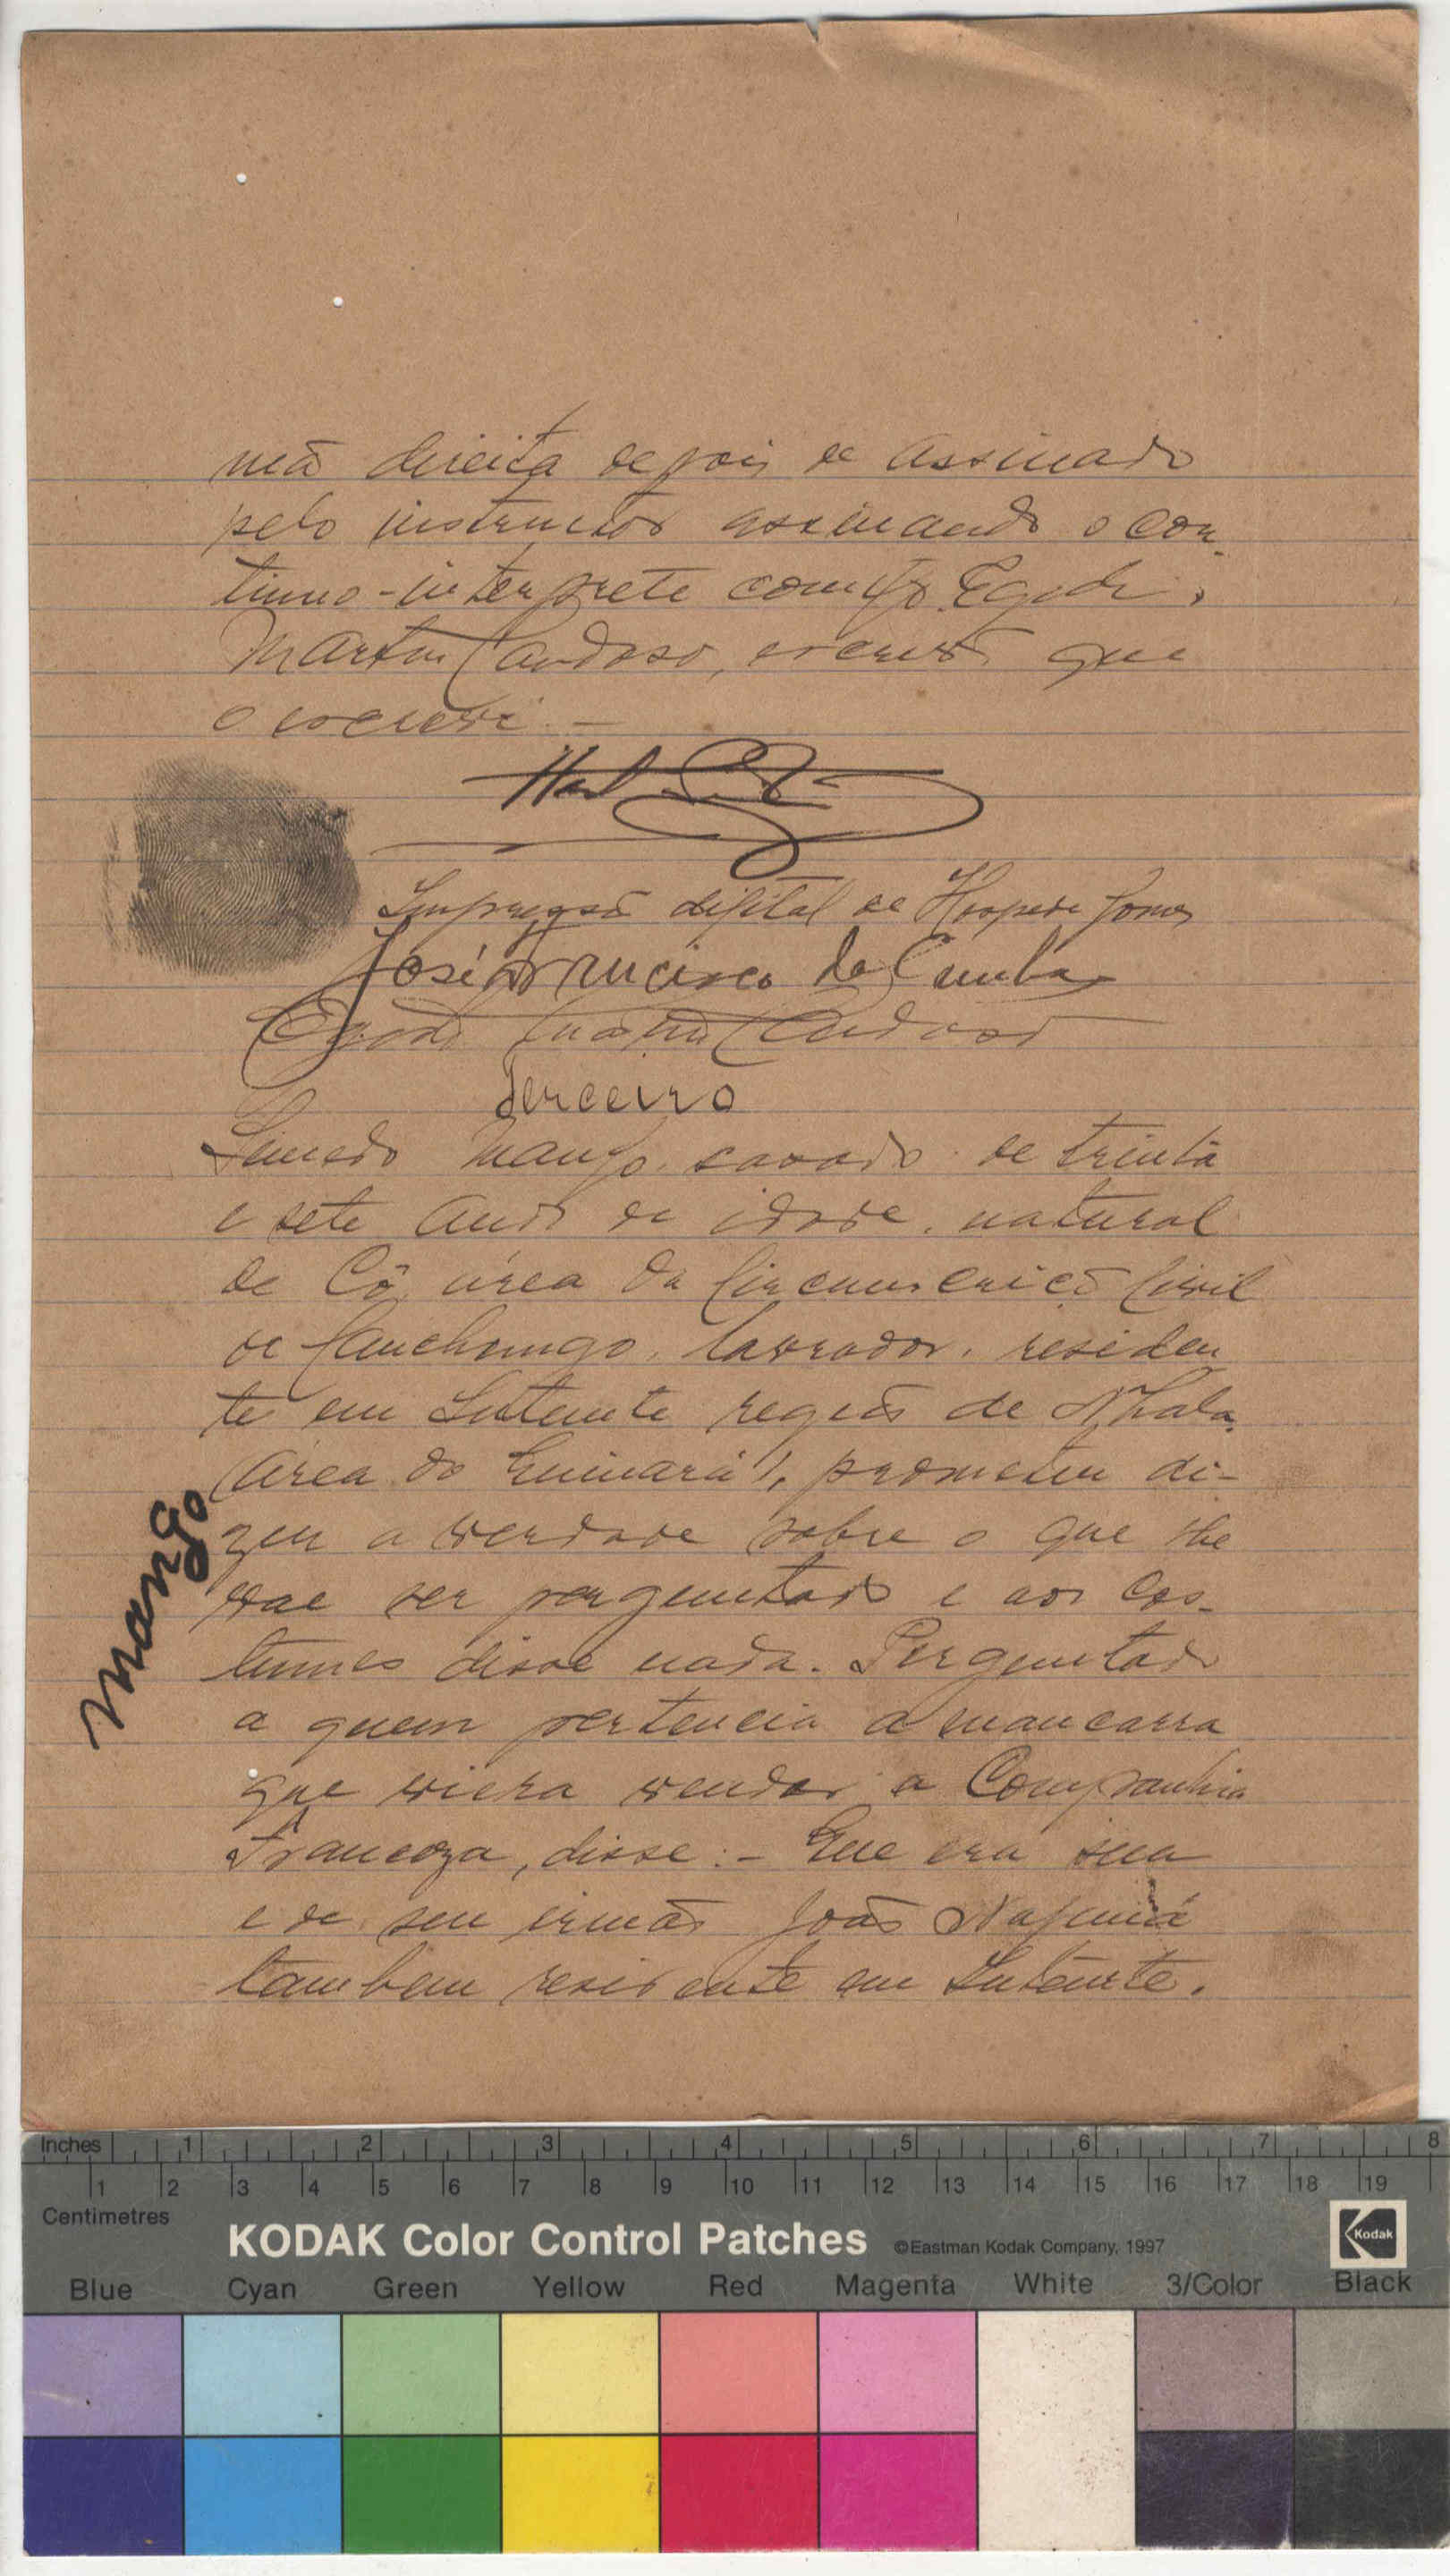 mão direita depois de assinado
pelo instructor assinando o con-
tinuo-interprete comigo Egidi
Martins Cardoso, escrivão que
o escrevi. —
Impressão digital de Hospede Gomes
José Francisco da Cunha
Martins Cardoso
Terceiro
Mango, casado, de trinta
e sete anos de idade, natural
de Cô, área da Circunscrição Civil
de Canchungo, lavrador, residen
te em região de N'hala
(área do Quinará), prometeu di-
zer a verdade sobre o que lhe
vae ser perguntado e aos cos-
tumes disse nada. Perguntado
a quem pertencia a mancarra
que viera vender a Companhia
Franceza, disse: - Que era sua
e de seu irmão João
tambem residente em
Mango
Inches 1 2 3 4 5 6 7 8
1 2 3 4 5 6 7 8 9 10 11 12 13 14 15 16 17 18 19
Centimetres
KODAK Color Control Patches ©Eastman Kodak Company, 1997 Kodak
Blue Cyan Green Yellow Red Magenta White 3/Color Black